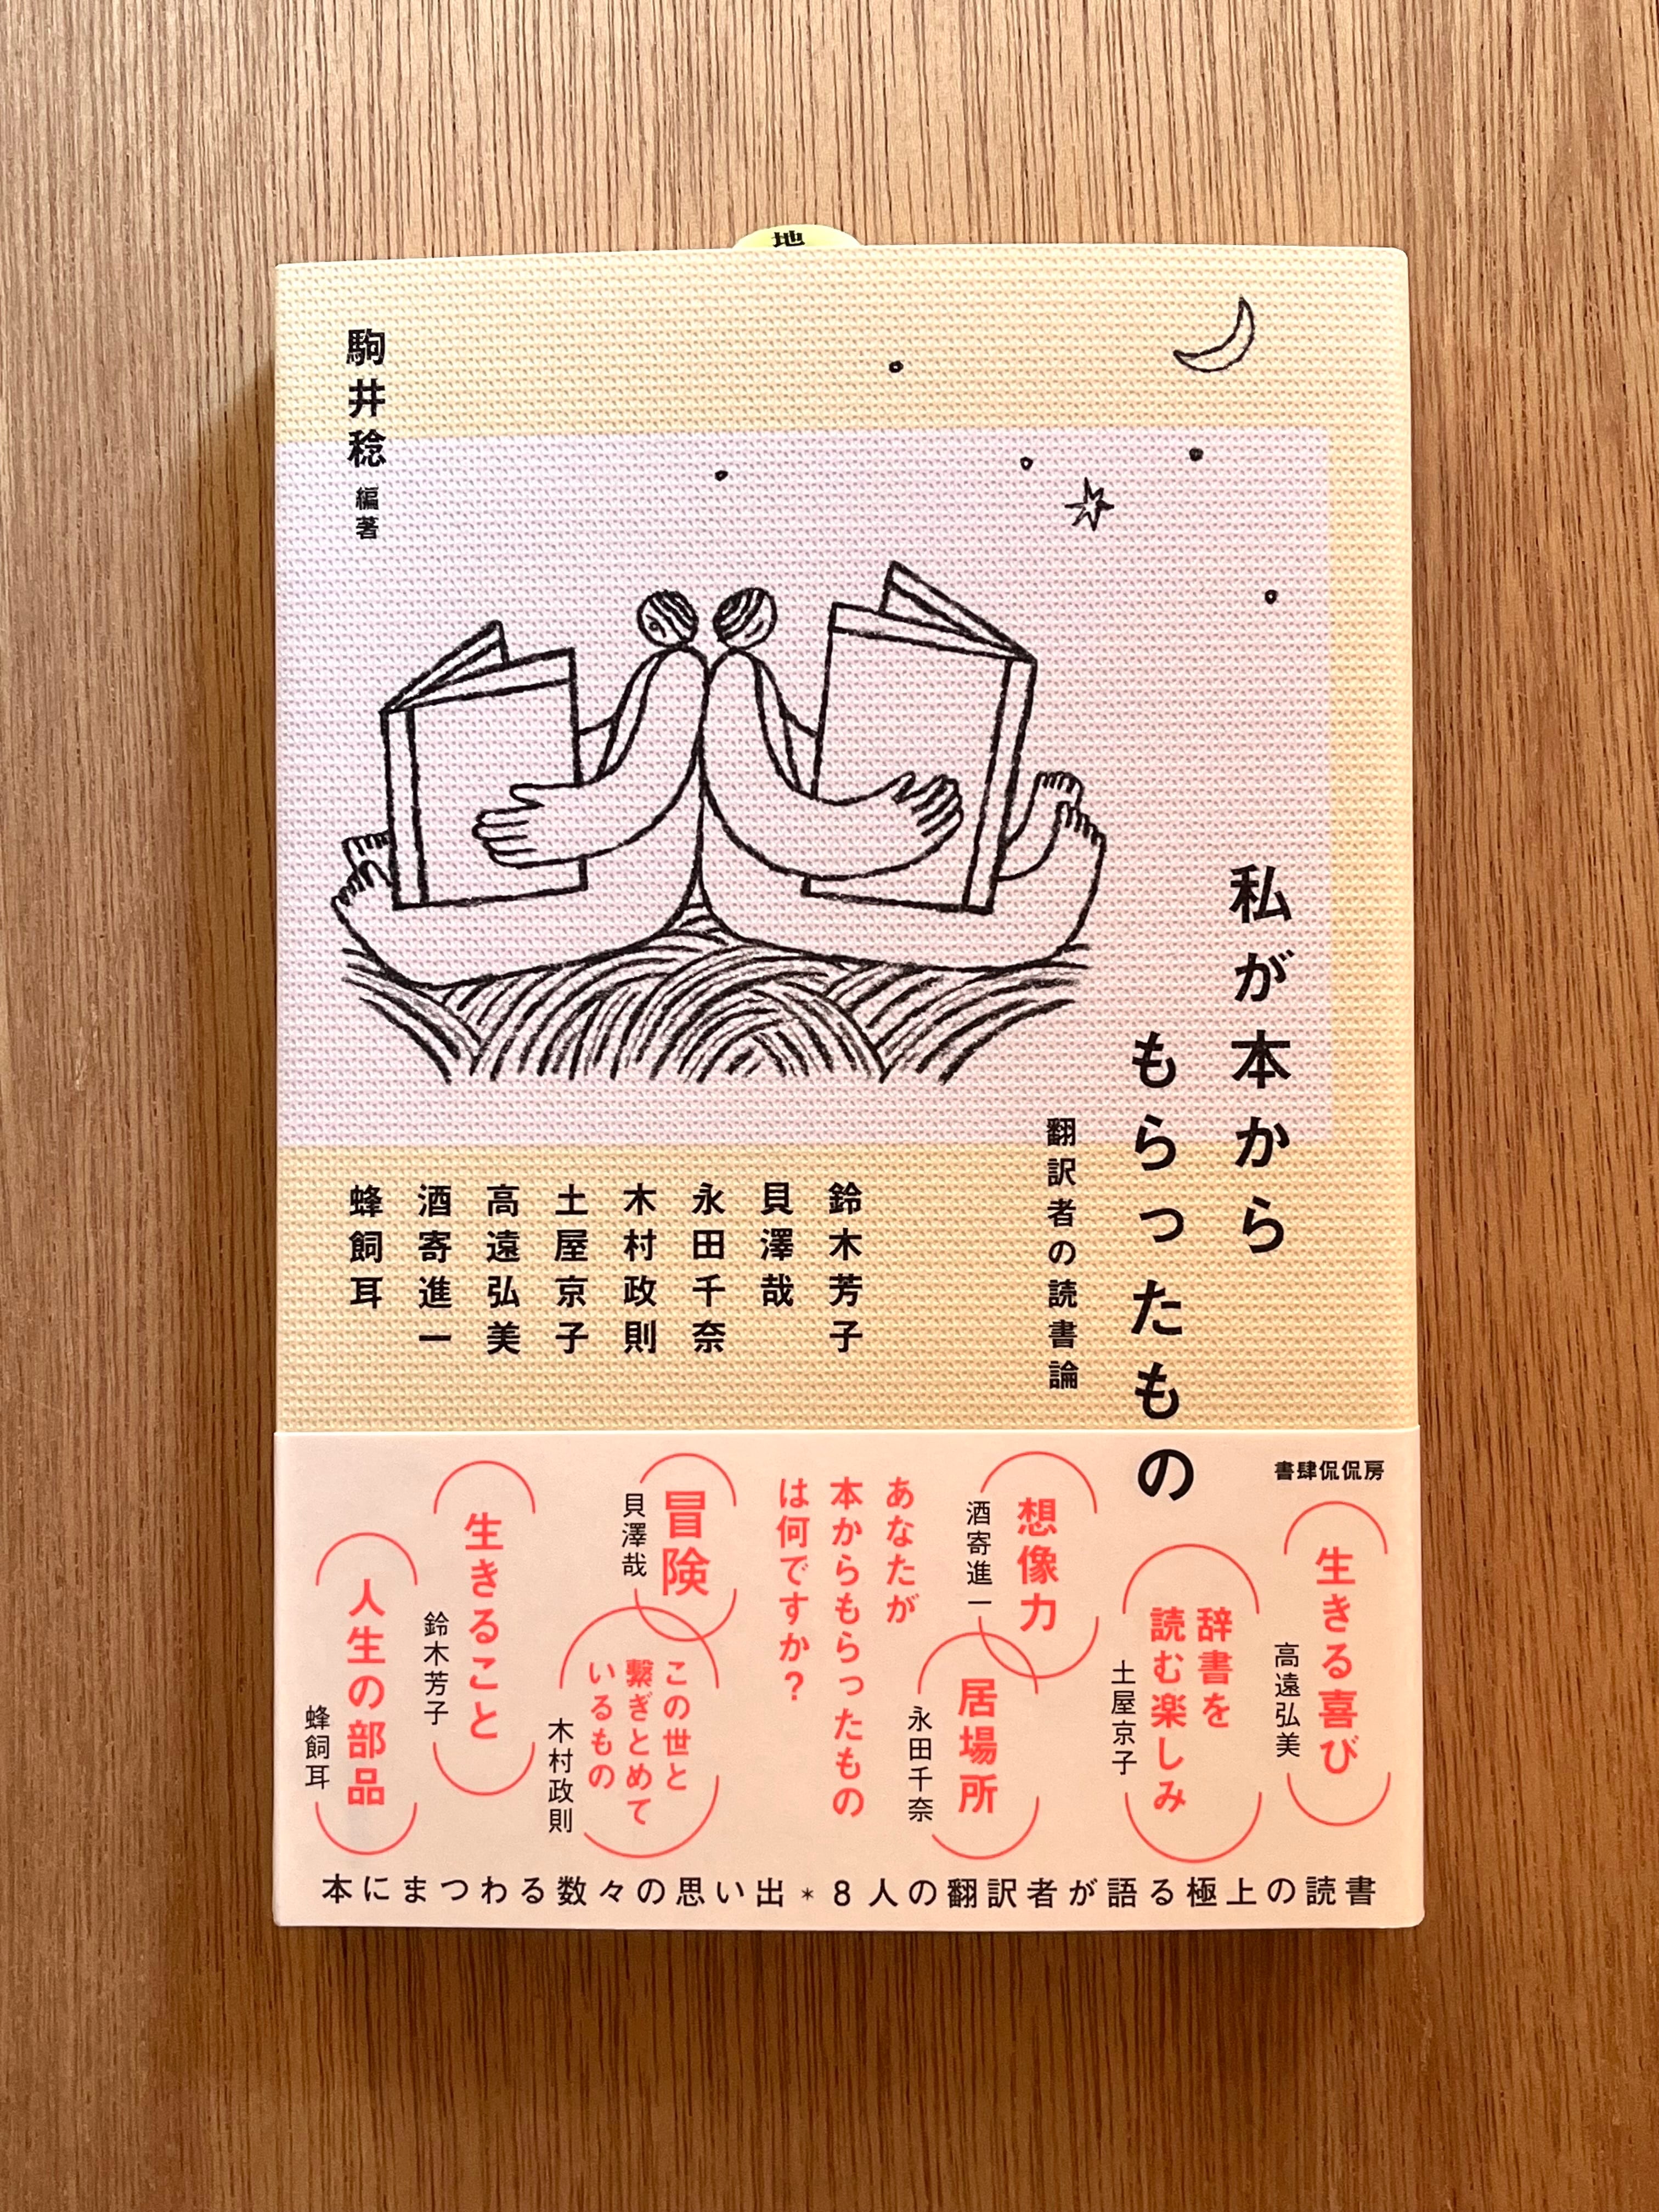 地
私が本から
もらったもの
翻訳者の読書論
駒井稔 編著
鈴木芳子
貝澤哉
永田千奈
木村政則
土屋京子
高遠弘美
酒寄進一
蜂飼耳
書肆侃侃房
生きる喜び
高遠弘美
辞書を
読む楽しみ
土屋京子
想像力
酒寄進一
居場所
永田千奈
あなたが
本からもらったもの
は何ですか？
冒険
貝澤哉
この世と
繋ぎとめて
いるもの
木村政則
生きること
鈴木芳子
人生の部品
蜂飼耳
本にまつわる数々の思い出＊8人の翻訳者が語る極上の読書